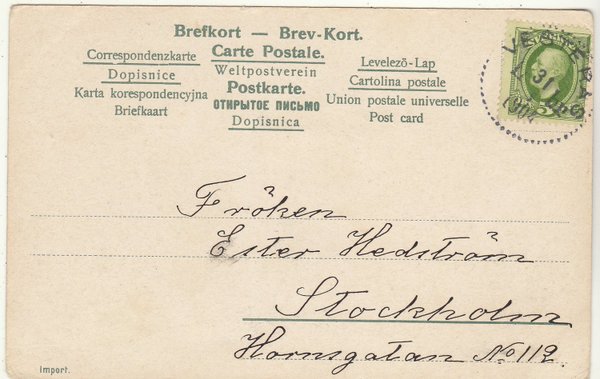 Brefkort — Brev-Kort.
Correspondenzkarte Carte Postale. Levelező-Lap
Dopisnice Weltpostverein Cartolina postale
Karta korespondencyjna Postkarte. Union postale universelle
Briefkaart ОТКРЫТОЕ ПИСЬМО Post card
Dopisnica
31
1904
Fröken
Ester Hedström
Stockholm
Hornsgatan No 112
Import.